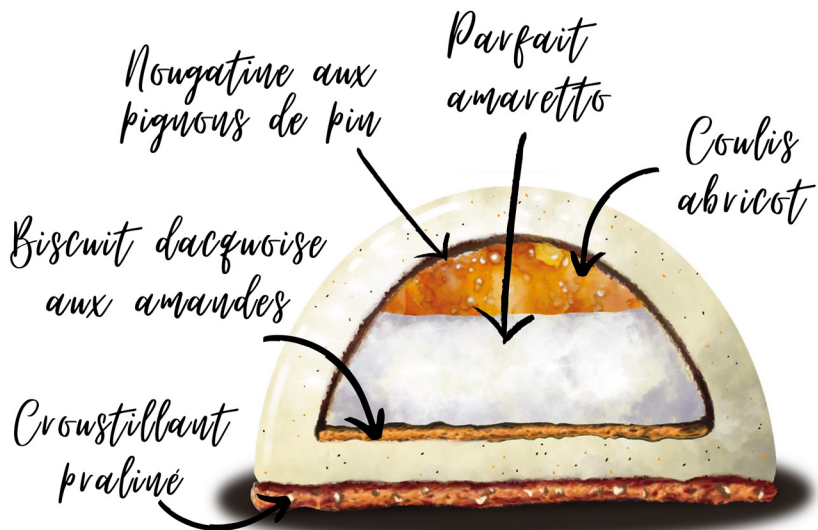 Nougatine aux
pignons de pin
Parfait
amaretto
Coulis
abricot
Biscuit dacquoise
aux amandes
Croustillant
praliné